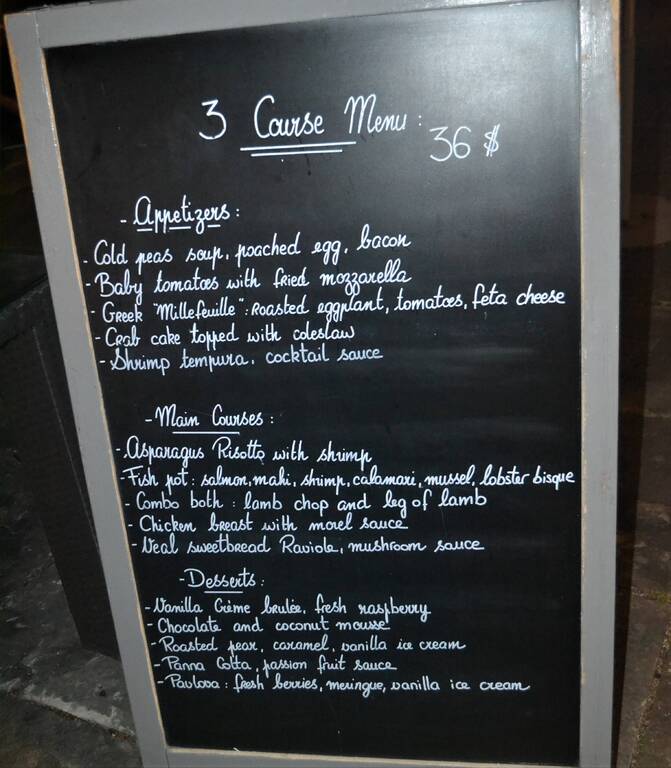 3 Course Menu : 36 $
- Appetizers :
- Cold peas soup, poached egg, bacon
- Baby tomatoes with fried mozzarella
- Greek "Millefeuille" : Roasted eggplant, tomatoes, feta cheese
- Crab cake topped with coleslaw
- Shrimp tempura, cocktail sauce
- Main Courses :
- Asparagus Risotto with shrimp
- Fish pot : salmon, mahi, shrimp, calamari, mussel, lobster bisque
- Combo both : lamb chop and leg of lamb
- Chicken breast with morel sauce
- Veal sweetbread Raviole, mushroom sauce
- Desserts :
- Vanilla Crème brulée, fresh raspberry
- Chocolate and coconut mousse
- Roasted pear, caramel, vanilla ice cream
- Panna Cotta, passion fruit sauce
- Pavlova : fresh berries, meringue, vanilla ice cream